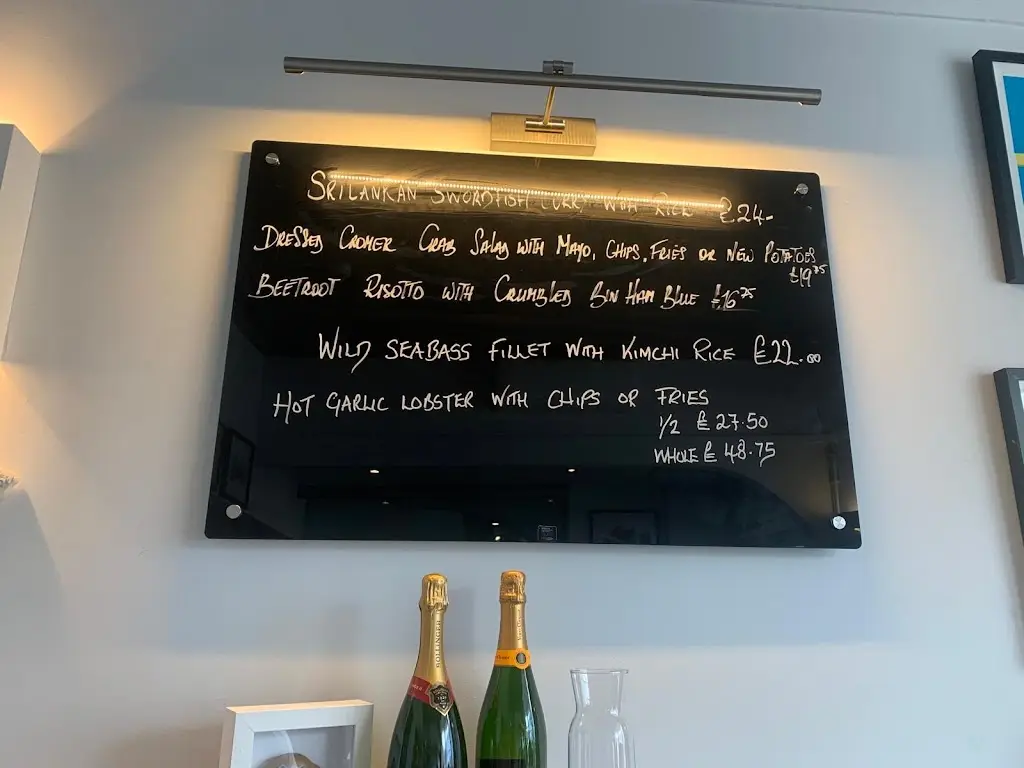 SRILANKAN SWORDFISH CURRY WITH RICE £24-
DRESSED CROMER CRAB SALAD WITH MAYO, CHIPS, FRIES OR NEW POTATOES
£19.75
BEETROOT RISOTTO WITH CRUMBLED BIN HAM BLUE £16.25
WILD SEABASS FILLET WITH KIMCHI RICE £22.00
HOT GARLIC LOBSTER WITH CHIPS OR FRIES
1/2 £27.50
WHOLE £48.75
BOLLINGER